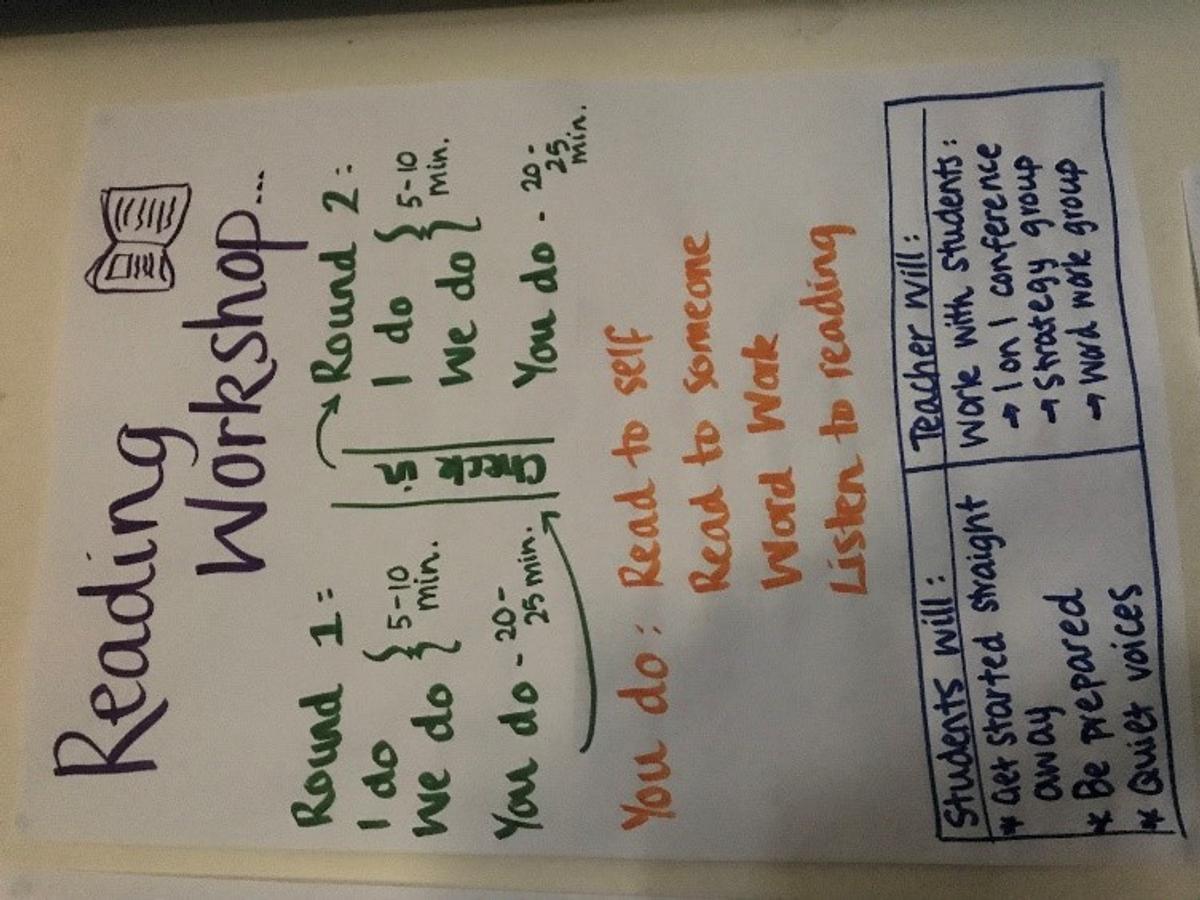 Reading
Workshop...
Round 1:
I do
We do } 5-10 min.
You do - 20-25 min.
Check
Round 2:
I do
We do } 5-10 min.
You do - 20-25 min.
You do: Read to self
Read to someone
Word Work
Listen to reading
Students will:
* Get started straight
away
* Be prepared
* Quiet voices
Teacher will:
Work with students:
→ 1 on 1 conference
→ Strategy group
→ Word work group